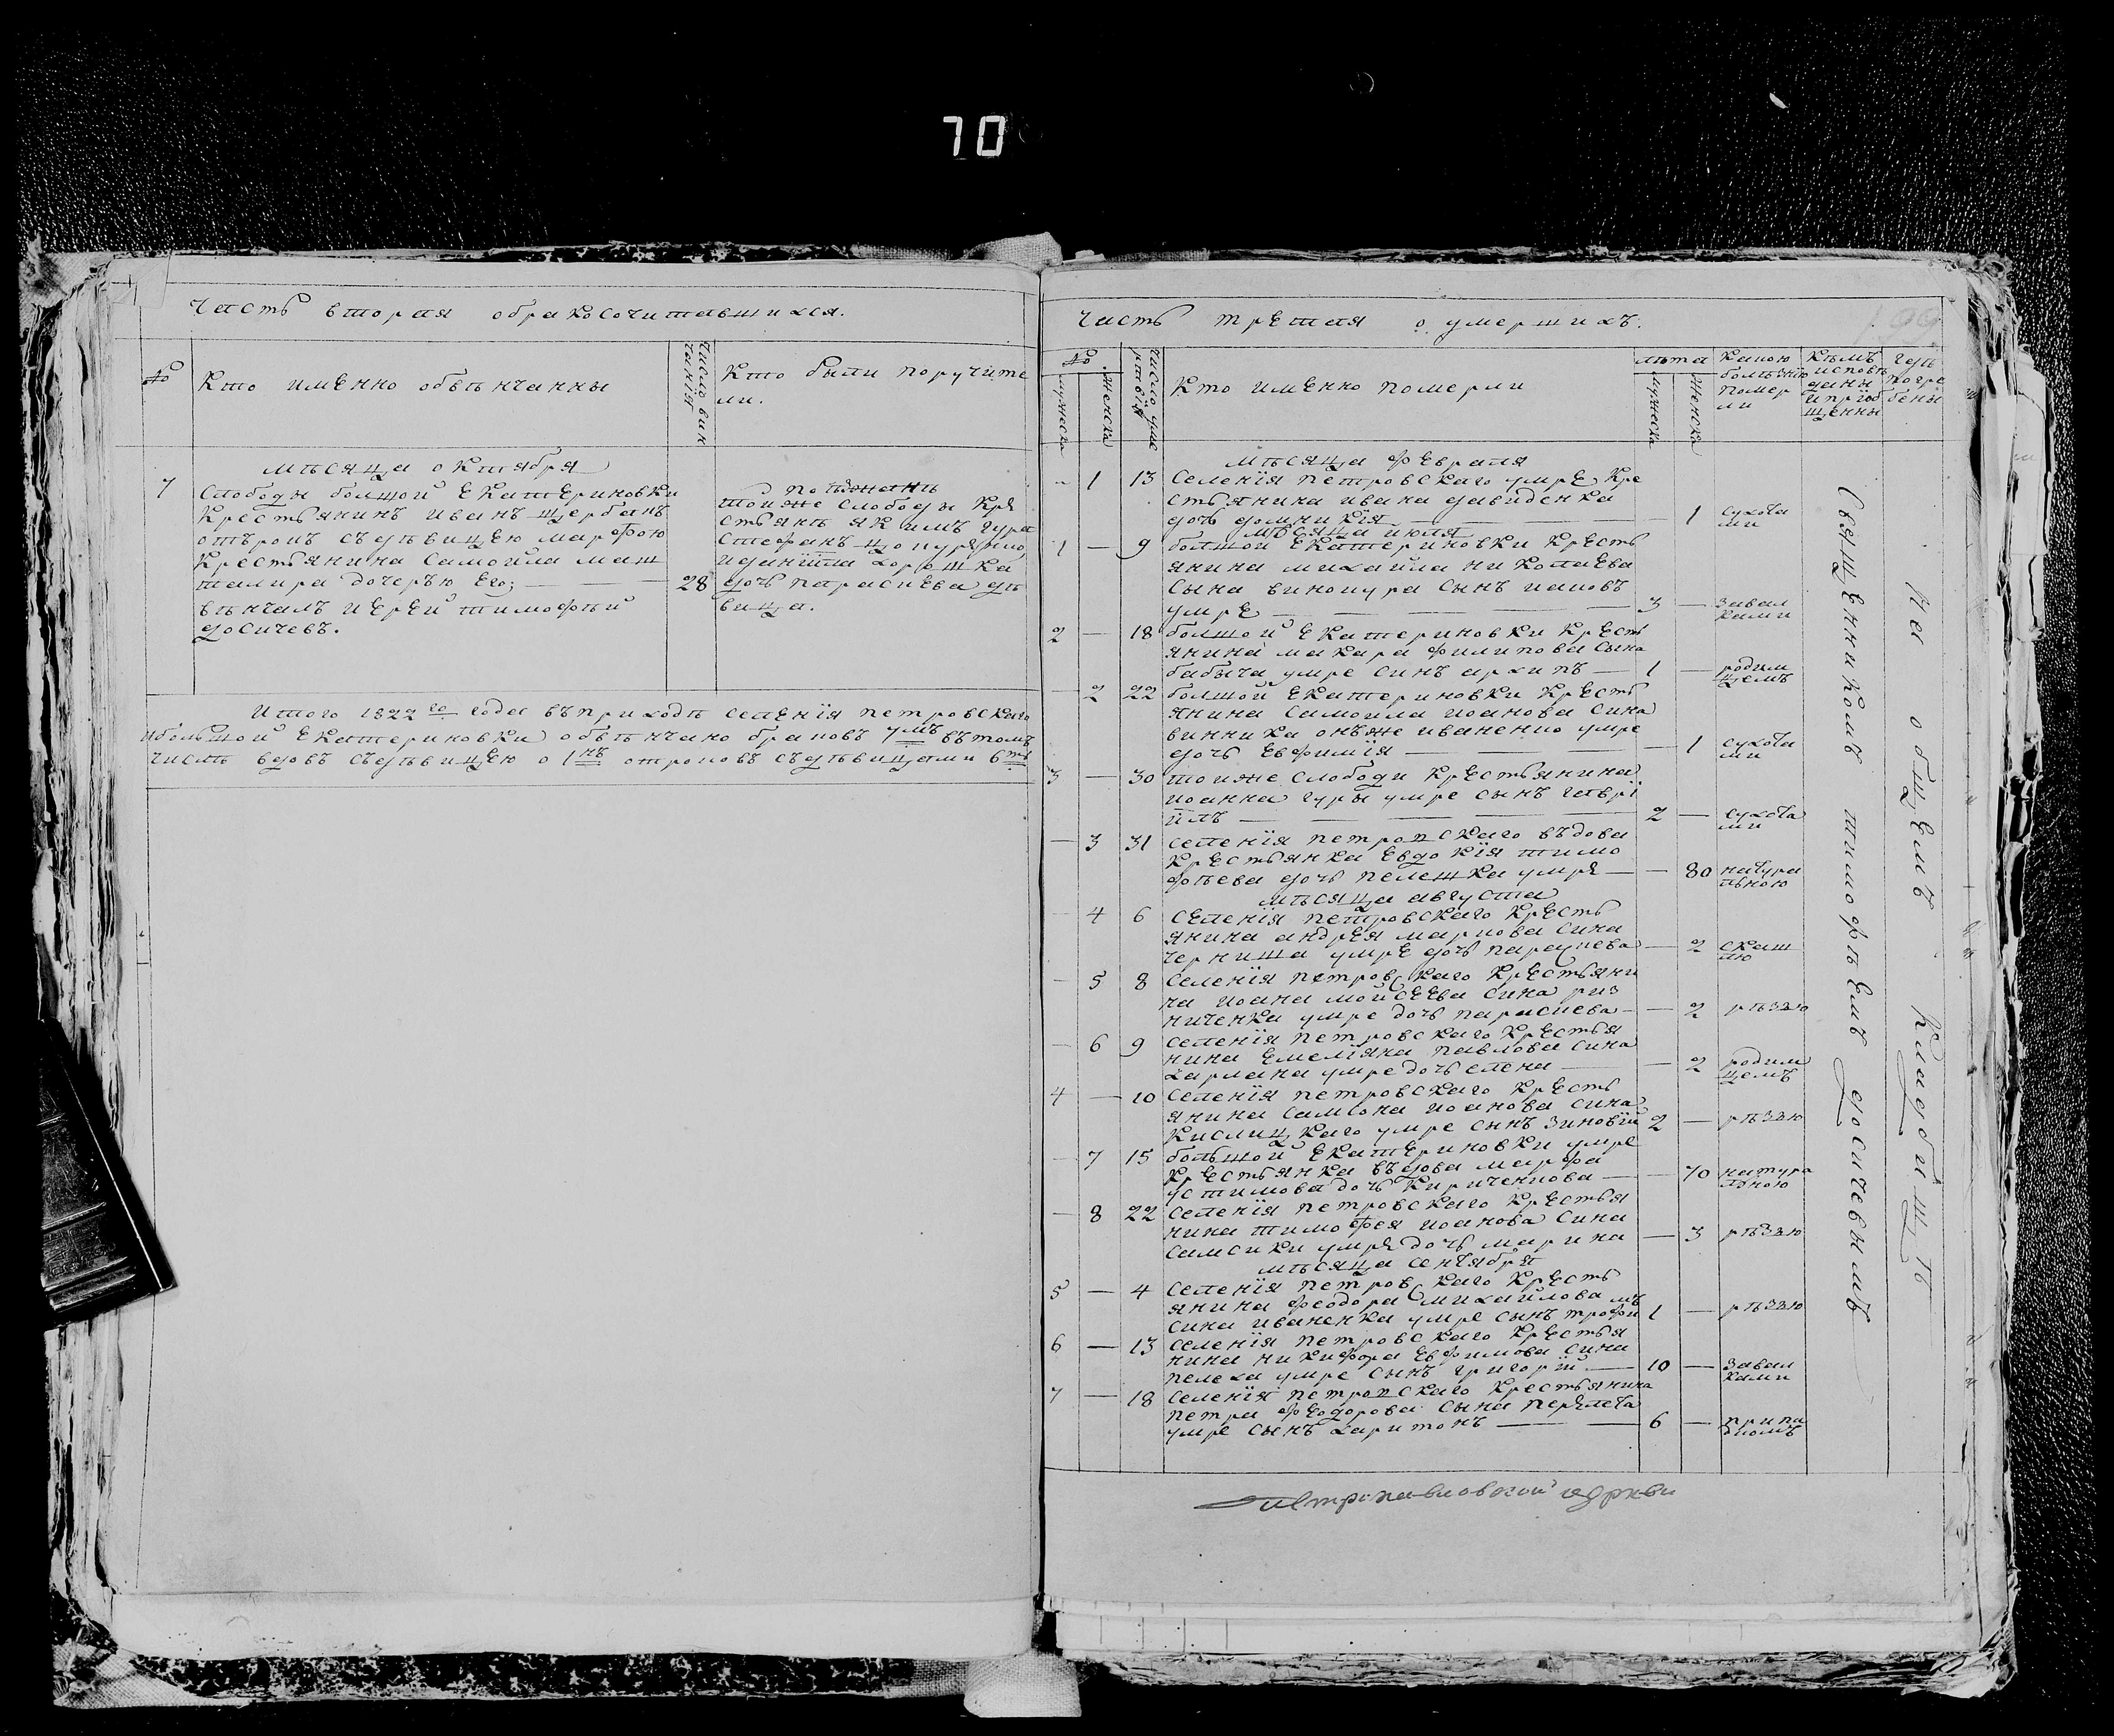 70
Часть вторая о бракосочитавшихся.
№
Кто именно обвѣнчанны
Число вин
чанія
Кто были поручите
ли.
мѣсяца октября
7
Слободы болшой Екатериновки
Крестьянинъ иванъ щербанъ
отрокъ съ дѣвицею марфою
Крестьянина Самойла маш
талира дочерью его;
28
вѣнчалъ иерей тимофѣй
досичевъ.
тоиже слободы кре
стьянѣ якимъ гура
Стефанъ цопуренко,
и данїила хорошка
дочь параскева дѣ
вица.
Итого 1822го года въ приходѣ селенїя петровскаго
и большой Екатериновки обвѣнчано браковъ 7мъ въ томъ
числѣ вдовъ съ дѣвицею о 1нъ отроковъ съ дѣвицами 6ть
Часть третая о умершихъ.
№
мужеска
Женска
Число уме
ртвїй
Кто именно померли
лѣта
мужеска
Женска
Какою
болѣзнїю
помер
ли
Кѣмъ
исповѣ
данны
и приоб
щенны
гдѣ
погре
бены
мѣсяца февраля
1 13 Селенїя петровскаго умре Кре
стьянина ивана давиденка
дочь домникїя — 1 сухота
ми
мѣсяца июля
1 — 9 болшой Екатериновки Кресть
янина михайла николаева
Сына винокура Сынъ иаковъ
умре — 3 — завал
ками
2 — 18 болшой Екатериновки Кресть
янина макара филипова Сына
бабыча умре синъ архипъ — 1 — родим
цемъ
— 2 22 болшой Екатериновки Кресть
янина Самоила иоанова Сина
винника онъже иваненко умре
дочь Евфимїя — 1 сухота
ми
3 — 30 тоиже слободи Крестьянина
иоанна гуры умре сынъ гаврї
илъ — 2 — сухота
ми
— 3 31 селенїя петропскаго въдова
Крестьянка Евдокїя тимо
фѣева дочь пелешка умре — 80 натура
льною
мѣсяца августа
— 4 6 Селенїя петровскаго Кресть
янина андрея маркова Сина
черниша умре дочь параскева — 2 скаш
лю
— 5 8 Селенїя петровскаго Крестьяни
на иоана мойсеева сина риз
ниченка умре дочь параскева — 2 рѣззю
— 6 9 селенїя петровскаго Крестья
нина Емелїяна павлова сина
хармана умре дочь елена — 2 родим
цемъ
4 — 10 Селенїя петровскаго Кресть
янина Самсона иоанова сина
Кислицкаго умре сынъ зиновїй 2 — рѣззю
— 7 15 большой Екатериновки умре
Крестьянка въдова марфа
устимова дочь Кириченкова — 70 натура
лною
— 8 22 селенїя петровскаго Крестья
нина тимофея иоанова сина
самсики умре дочь марина — 3 рѣззю
мѣсяца сентября
5 — 4 Селенїя петровскаго Кресть
янина феодора михайлова
сина иваненка умре сынъ трофимъ 1 — рѣззю
6 — 13 селенїя петровскаго Крестья
нина никифора Евфимова сина
пелеха умре сынъ григорїй — 10 — завал
ками
7 — 18 селенїя петропскаго Крестьянина
петра феодорова сына перелета
умре сынъ харитонъ — 6 — припа
дкомъ
Священникомъ тимофѣемъ досичевымъ
На общемъ Кладбищѣ
Петропавловской церкви